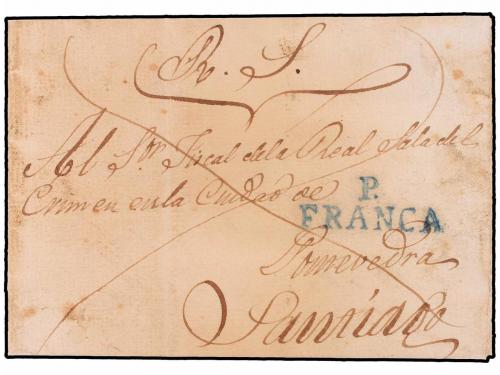 R. S.
Al Sor. Fiscal de la Real Sala del
Crimen en la Ciudad de
P.
FRANCA
Pontevedra
Santiago